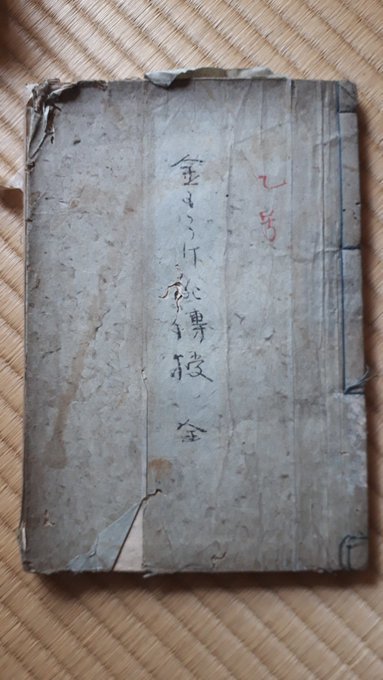 乙号
金もうけ秘傳授 全